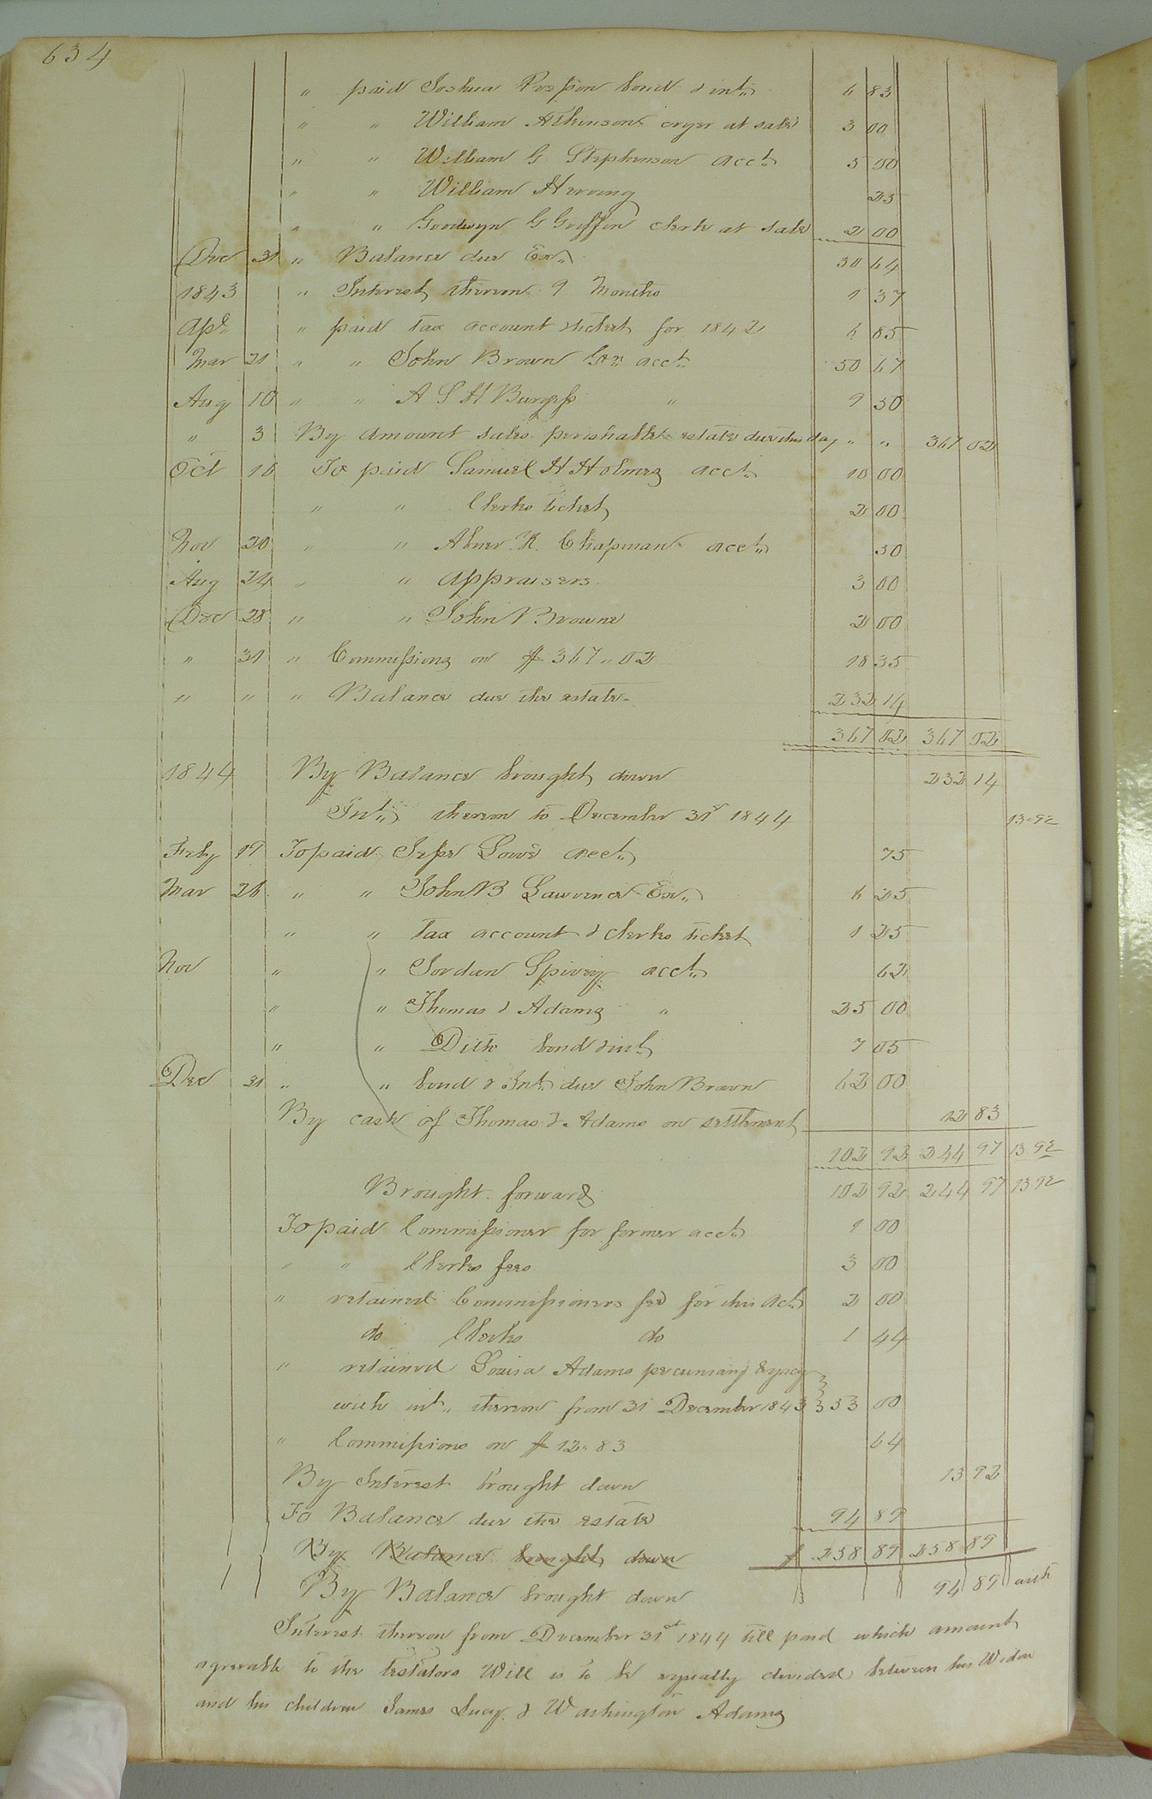 634
" paid Joshua Pospon bond & int. 6 83
" " William Atkinson cryer at sale 3 00
" " William G Stephenson acct. 5 00
" " William H 25
" " Goodwyn G Griffin clerk at sale 2 00
Dec 31 " Balance due Exr. 30 64
1843 " Interest thereon 9 Months 1 37
Apl. " paid tax account ticket for 1842 6 85
Mar 21 " " John Brown acct. 50 67
Aug 10 " " A S H Burgess " 9 50
" 3 By amount sales perishable estate due this day " " 367 02
Oct 10 To paid Samuel H Holmes acct. 10 00
" " Clerks ticket 2 00
Nov 20 " " Abner K. Chapman acct. 50
Aug 24 " " appraisers 3 00
Dec 28 " " John Browne 2 00
" 31 " Commissions on $367"02 18 35
" " " Balance due the estate 232 14
367 02 367 02
1844 By Balance brought down 232 14
Int. thereon to December 31st 1844 13"92
Feby 19 To paid Love acct. 75
Mar 26 " " John B Lawrence Exr. 6 25
" " tax account & clerks ticket 1 25
Nov " " Jordan Spivey acct. 62
" " Thomas J Adams " 25 00
" " Ditto bond & int. 7 05
Dec 31 " " bond & Int. due John Brown 62 00
By cash of Thomas J. Adams on settlement 12 83
102 92 244 97 13 92
Brought forward 102 92 244 97 13 92
To paid Commissioner for former acct. 1 00
" " Clerks fees 3 00
" retained Commissioners fee for this act. 2 00
do Clerks do 1 44
" retained Louisa Adams pecuniary legacy
with int. thereon from 31 December 1843 53 00
" Commissions on $12"83 64
By Interest brought down 13 92
To Balance due the estate 94 89
By Balance brought down $ 258 89 258 89
By Balance brought down 94 89 with
Interest thereon from December 31st 1844 till paid which amount
agreeable to the testators Will is to be equally divided between his Widow
and his children James Lucy & Washington Adams